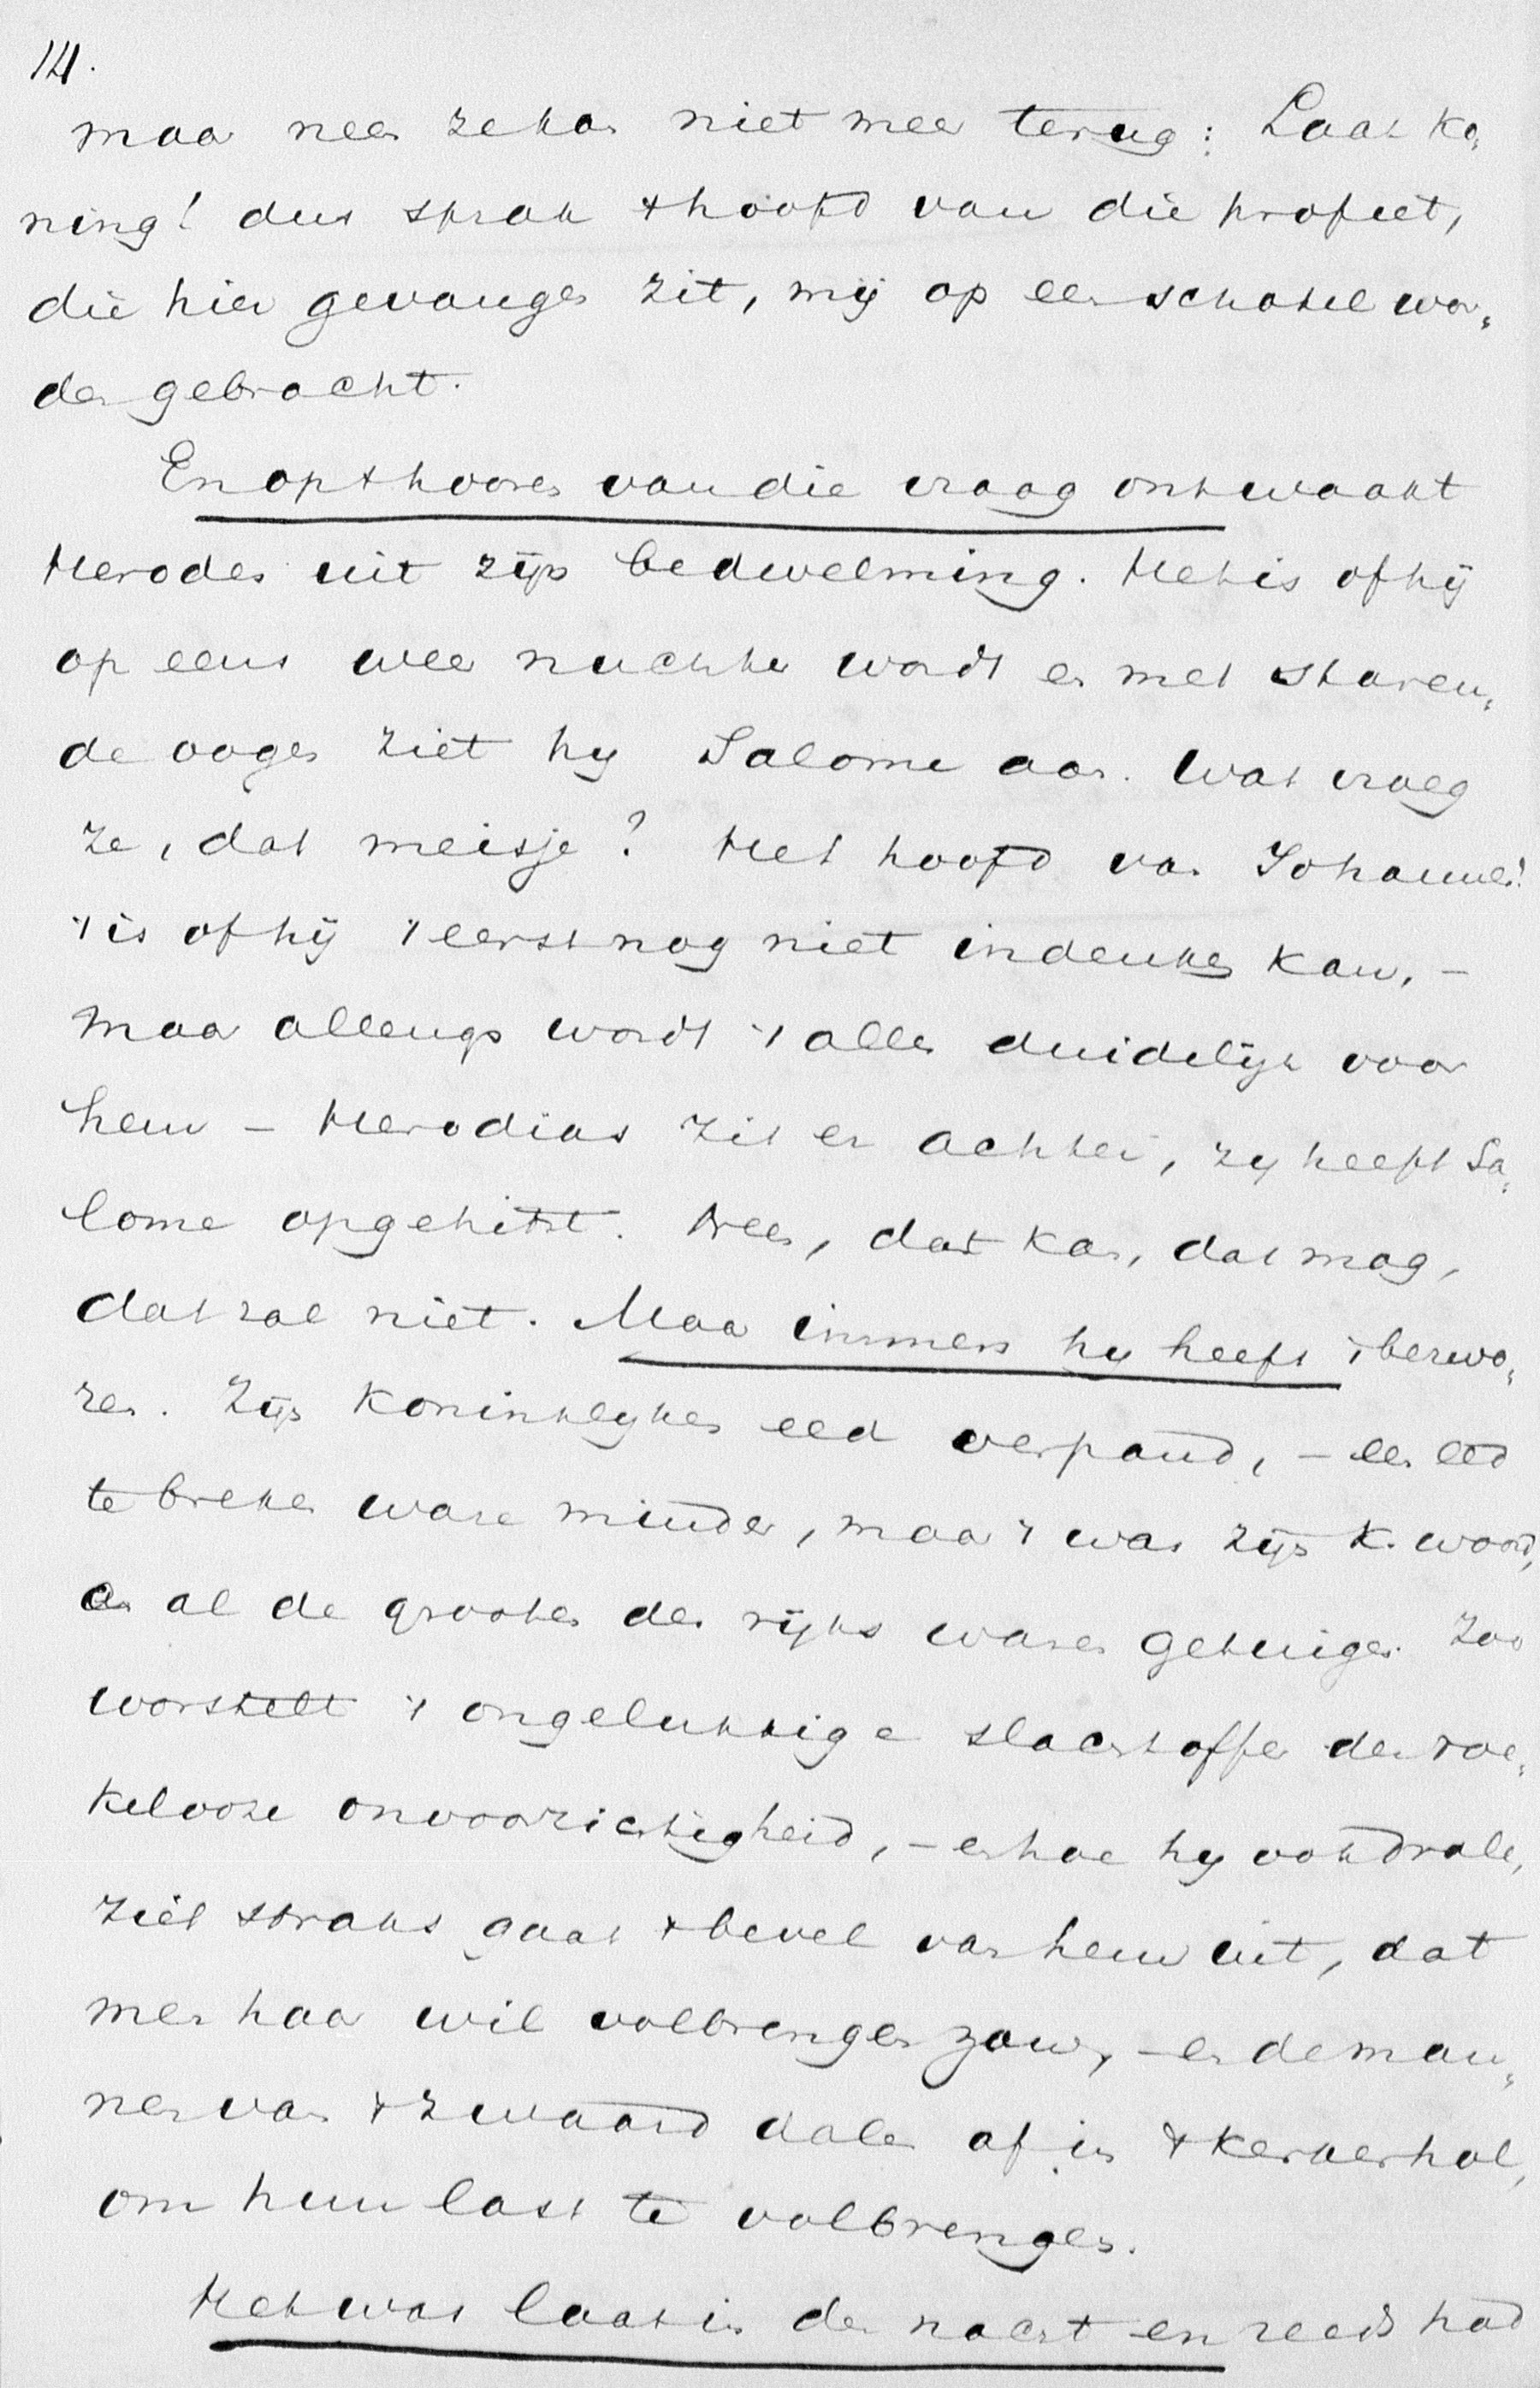 14.
maar neen ze kan niet meer terug: Laat ko„
ning! dus sprak 't hoofd van die profeet,
die hier gevangen zit, mij op een schotel wor„
den gebracht.
En op 't hooren van die vraag ontwaakt
Herodes uit zijn bedwelming. Het is of hij
op eens weer nuchter wordt en met staren„
de oogen ziet hij Salome aan. Wat vraag
ze, dat meisje? Het hoofd van Johannes!
't is of hij 't eerst nog niet indenken kan, –
maar allengs wordt 't alles duidelijk voor
hem – Herodias zit er achter, zij heeft Sa„
lome opgehitst. Neen, dat kan, dat mag,
dat zal niet. Maar immers hij heeft 't bezwo„
ren. Zijn koninklijken eed verpand, – een eed
te breken ware minder, maar 't was zijn K. woord,
en al de grooten des rijks waren getuigen. Zoo
worstelt 't ongelukkige slachtoffer der roe„
kelooze onvoorzichtigheid, – en hoe hij ook drale,
ziet straks gaat 't bevel van hem uit, dat
men haar wil volbrengen zou, – en de man„
nen van 't zwaard dalen af in 't kerkerhol,
om hun last te volbrengen.
Het was laat in den nacht en reeds had